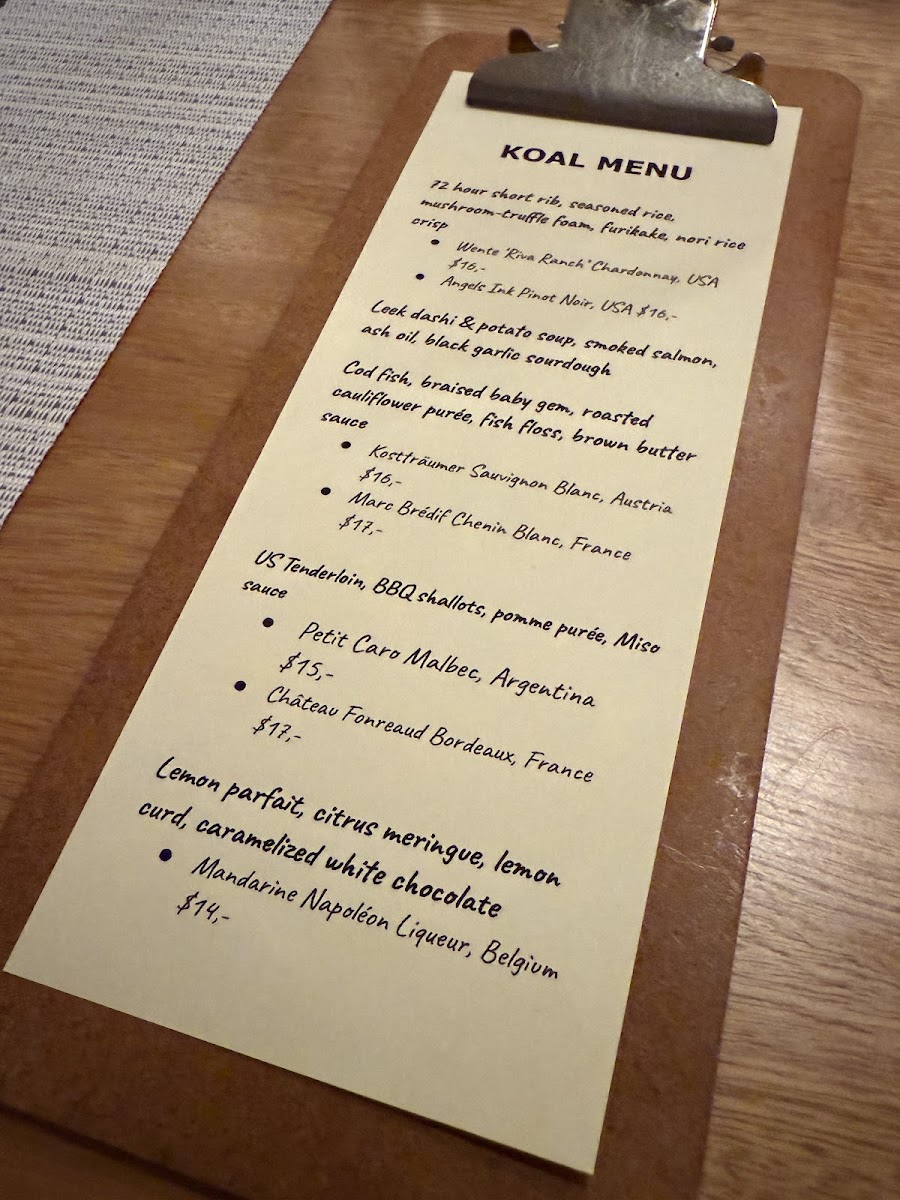 KOAL MENU
72 hour short rib, seasoned rice,
mushroom-truffle foam, furikake, nori rice
crisp
• Wente 'Riva Ranch' Chardonnay, USA
$16,-
• Angels Ink Pinot Noir, USA $16,-
Leek dashi & potato soup, smoked salmon,
ash oil, black garlic sourdough
Cod fish, braised baby gem, roasted
cauliflower purée, fish floss, brown butter
sauce
• Kostträumer Sauvignon Blanc, Austria
$16,-
• Marc Brédif Chenin Blanc, France
$17,-
US Tenderloin, BBQ shallots, pomme purée, Miso
sauce
• Petit Caro Malbec, Argentina
$15,-
• Château Fonreaud Bordeaux, France
$17,-
Lemon parfait, citrus meringue, lemon
curd, caramelized white chocolate
• Mandarine Napoléon Liqueur, Belgium
$14,-